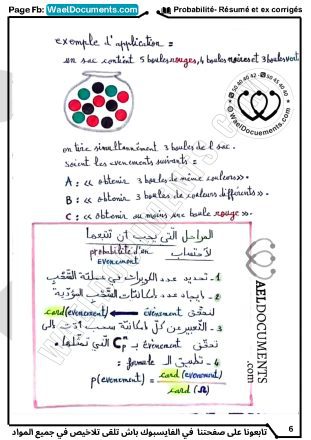 Page Fb: WaelDocuments.com
Probabilité- Résumé et ex corrigés
exemple d'application =
un sac contient 5 boules rouges, 4 boules noires et 3 boules vert
en tire simultanément 3 boules de l sac.
Soient les evenements suivants =
A : « obtenir 3 boules de même couleurs ».
B : « obtenir 3 boules de couleurs différents ».
C : « obtenir au moins une boule rouge ».
المراحل التي يجب أن نتبعها
لاحتساب probabilité d'un évenement
1 - تحديد عدد الكويرات في عملية السحب
2 - ايجاد عدد امكانيات السحب المؤدية
لتحقق évenement ← card(evenement)
3 - التعبير عن كل امكانية سحب أدت إلى
تحقق évenement بـ C التي تمثلها.
4 - تطبيق الـ formule =
p(evenement) = card(evenement) / card(Ω)
WaelDocuments.com
WAELDOCUMENTS.com
تابعونا على صفحتنا في الفايسبوك باش تلقى تلاخيص في جميع المواد
6